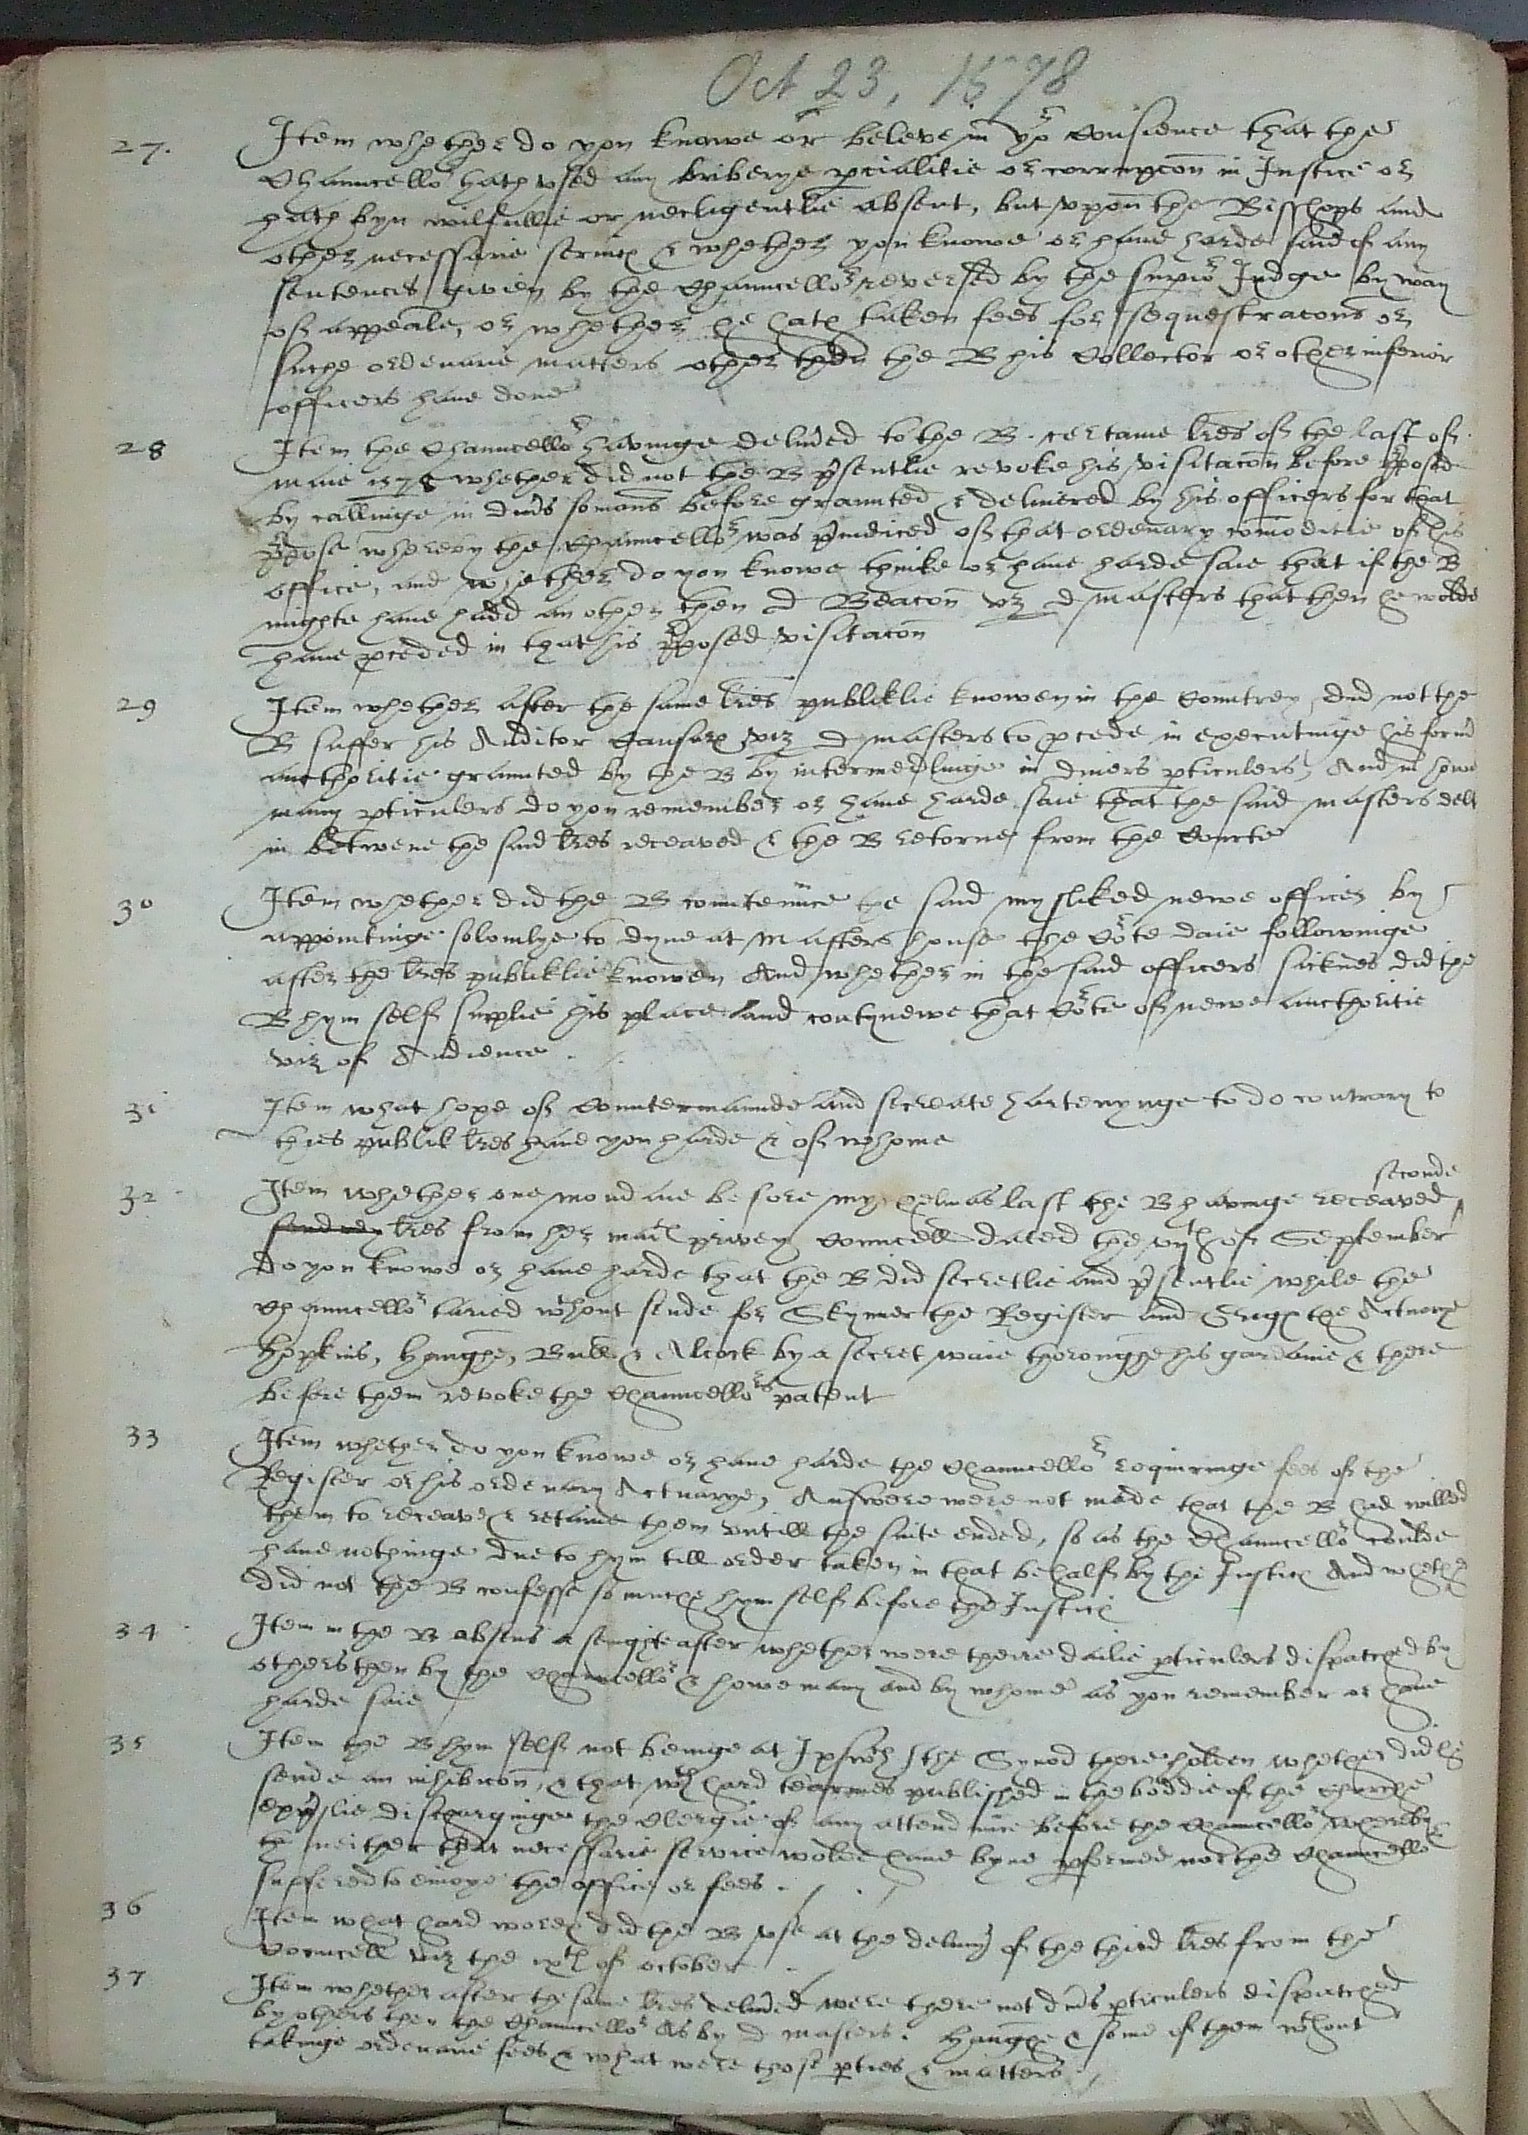 Oct 23, 1578
27. Item whether do you knowe or beleve in yor consience that the
Chauncellor hath vsed any briberye pcialitie or corrupcon in Justice or
hath byn wilfullie or necligentlie absent, but vpon the Bisshops and
other necessarie service & whether you knowe or have harde said of any
sentences given by the Chauncellor reversed by the supior Judge by way
of appeale, or whether he hath taken fees for sequestracons or
suche ordenarie matters other then the B his Collector or other inferior
officers have done
28 Item the Chauncellor havinge delived to the B. certaine lres of the last of
maie 1578 whether did not the B psentlie revoke his visitacon before pposed
by callinge in divs somons before graunted & delivered by his officers for that
ppose whereby the Chauncellor was piudiced of that ordenary comoditie of his
office, and whether do you knowe thinke or have harde saie that if the B
mighte have hadd an other then d Beacon vz d masters that then he wolde
have pceded in that his pposed visitacon
29 Item whether after the same lres publiklie knowen in the Countrey did not the
B suffer his Auditor Causar viz d masters to pcede in executinge his formr
aucthoritie graunted by the B by intermedlinge in divers pticulers, And in howe
many pticulers do you remember or have harde saie that the said masters delt
in betwene the said lres receaved & the B retorne from the Courte
30 Item whether did the B countennce the said mysliked newe officer by
appointinge solomlye to dyne at masters house the Corte daie followinge
after the lres publiklie knowen And whether in the said officers sicknes did the
B hym self supplie his place and contynewe that Corte of newe aucthoritie
viz of Audience.
31 Item what hope of Countermaunde and secreate hartenynge to do contrary to
thies publik lres have you harde & of whome
32 Item whether one mondaie before mychelmas last the B havinge receaved seconde
lres from her matis privey Councell dated the vijth of September
do you knowe or have harde that the B did secretlie and psentlie while the
Chauncellor taried wthout sende for Skynner the Register and the Actuarye
Hopkins, Haughe, Bull & Alcock by a secret waie thoroughe his gardaine & there
before them revoke the Chauncellors patent
33 Item whether do you knowe or have harde the Chauncellor requiringe fees of the
Register or his ordenary Actuarye, Answere were not made that the B had willed
them to receave & retaine them vntill the suite ended, so as the Chauncellor coulde
have nothinge due to hym till order taken in that behalf by the Justice And whether
did not the B confesse so muche hym self before the Justice
34 Item in the B absens a senighte after whether were theire dailie pticulers dispatched by
others then by the Chauncellor & howe many and by whome as you remember or have
harde saie
35 Item the B hym self not beinge at Ipswch the Synod there holden whether did he
sende an inhibicon, & that wth hard tearmes published in the boddie of the churche
expslie discharginge the Clergie of any attendnnce before the Chauncellor whereby
neither that necessarie service wolde have byne pformed nor the Chauncellor
suffered to enioye the office or fees.
36 Item what hard wordes did the B vse at the delivy of the third lres from the
Councell viz the ixth of october
37 Item whether after the same lres delived were there not divs pticulers dispatched
by others then the Chauncellor As by d masters. Haughe & some of them wthout
takinge ordenarie fees & what were those pties & matters